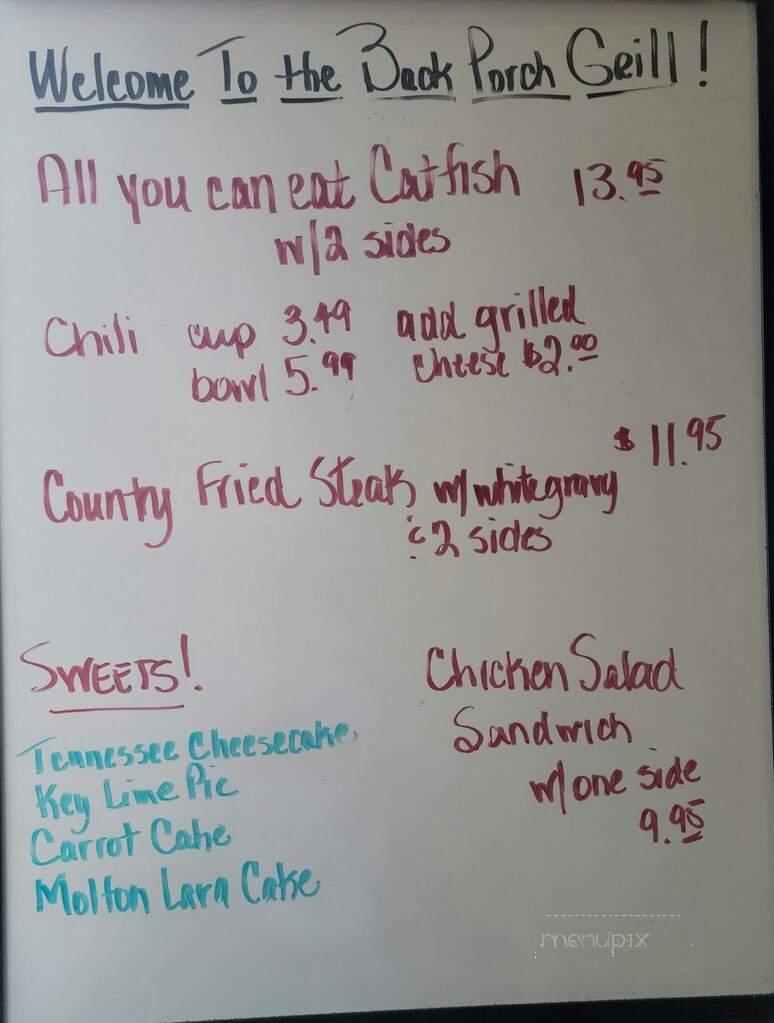 Welcome To the Back Porch Grill!
All you can eat Catfish 13.95
w/2 sides
Chili cup 3.49 add grilled
bowl 5.99 cheese $2.00
$11.95
County Fried Steak w/white gravy
& 2 sides
SWEETS!
Tennessee Cheesecake
Key Lime Pie
Carrot Cake
Molton Lava Cake
Chicken Salad
Sandwich
w/one side
9.95
menupix